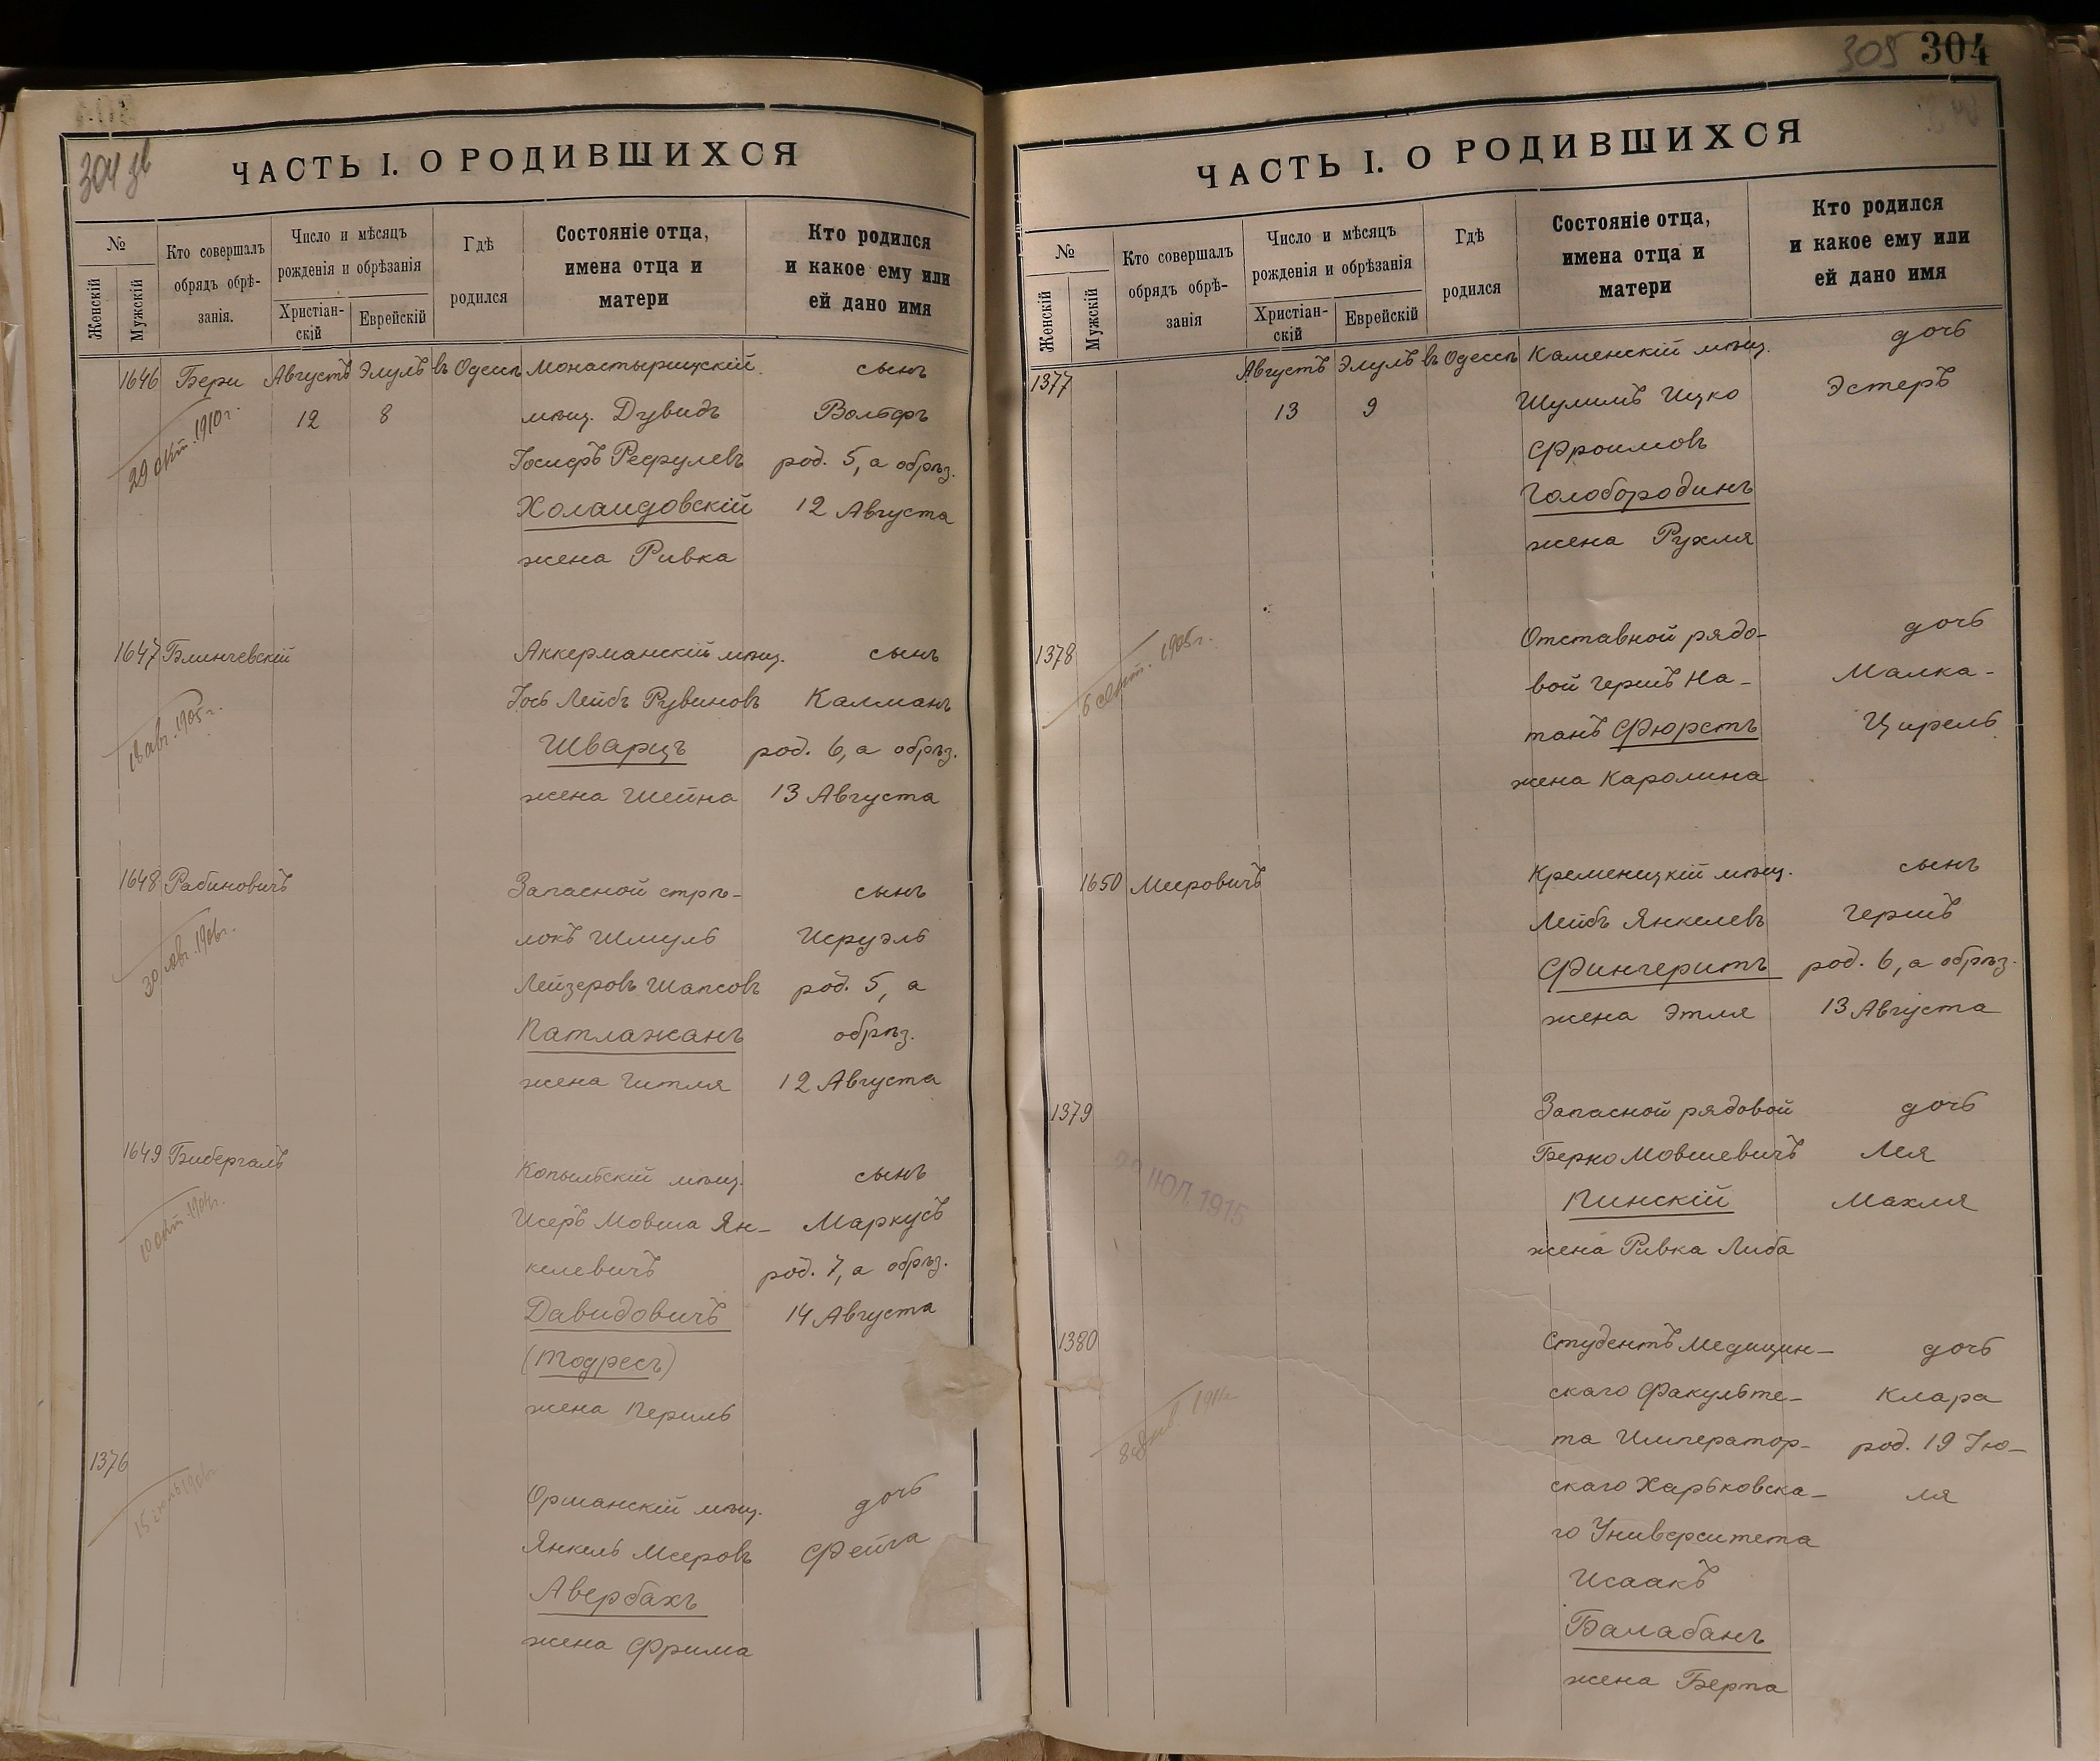 304 зв
ЧАСТЬ I. О РОДИВШИХСЯ
№
Женскій
Мужскій
Кто совершалъ
обрядъ обрѣ-
занія.
Число и мѣсяцъ
рожденія и обрѣзанія
Христіан-
скій
Еврейскій
Гдѣ
родился
Состояніе отца,
имена отца и
матери
Кто родился
и какое ему или
ей дано имя
1646 Бери Августъ Элулъ въ Одессѣ Монастырищскій сынъ
12 8 мѣщ. Дувидъ Вольфъ
29 окт. 1910 г. Іосифъ Рефулевъ род. 5, а обрѣз.
Холаидовскій 12 Августа
жена Ривка
1647 Блинчевскій Аккерманскій мѣщ. сынъ
18 авг. 1905 г. Іось Лейбъ Рувиновъ Калманъ
Шварцъ род. 6, а обрѣз.
жена Шейна 13 Августа
1648 Рабиновичъ Запасной стрѣ- сынъ
30 авг. 1906 г. локъ Шмуль Исруэль
Лейзеровъ Шапсовъ род. 5, а
Патлажанъ обрѣз.
жена Гитля 12 Августа
1649 Бибергалъ Копыльскій мѣщ. сынъ
Исеръ Мовша Ян- Маркусъ
келевичъ род. 7, а обрѣз.
Давидовичъ 14 Августа
(Тодресъ)
жена Перель
1376
Орманскій мѣщ. дочь
Янкель Мееровъ Фейга
Авербахъ
жена Фрима
305 304
ЧАСТЬ I. О РОДИВШИХСЯ
№
Женскій
Мужскій
Кто совершалъ
обрядъ обрѣ-
занія
Число и мѣсяцъ
рожденія и обрѣзанія
Христіан-
скій
Еврейскій
Гдѣ
родился
Состояніе отца,
имена отца и
матери
Кто родился
и какое ему или
ей дано имя
1377 Августъ Элулъ въ Одессѣ Каменскій мѣщ. дочь
13 9 Шулимъ Ицко Эстеръ
Фроимовъ
Голобородинъ
жена Рухля
1378 Отставной рядо- дочь
1905 г. вой Гершъ На- Малка-
танъ Фюрстъ Цирель
жена Каролина
1650 Мееровичъ Кременицкій мѣщ. сынъ
Лейбъ Янкелевъ Гершъ
Фингеритъ род. 6, а обрѣз.
жена Этля 13 Августа
1379 Запасной рядовой дочь
Берко Мовшевичъ Лея
ІЮЛ. 1915 Пинскій Махля
жена Ривка Либа
1380 Студентъ Медицин- дочь
скаго Факульте- Клара
та Император- род. 19 Ію-
скаго Харьковска- ля
го Университета
Исаакъ
Балабанъ
жена Берта